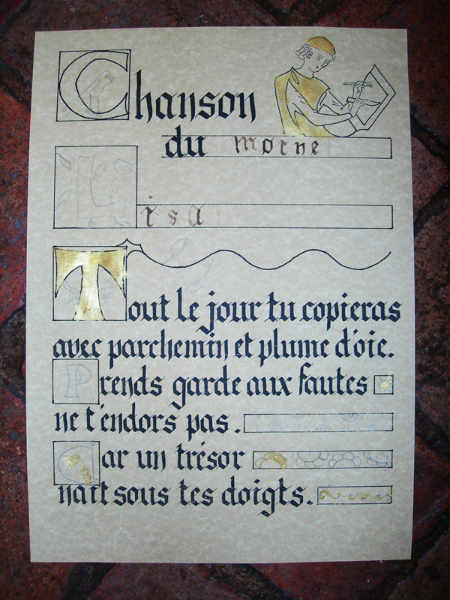 Chanson
du moine
Lisa
Tout le jour tu copieras
avec parchemin et plume d'oie.
Prends garde aux fautes
ne t'endors pas.
Car un trésor
nait sous tes doigts.